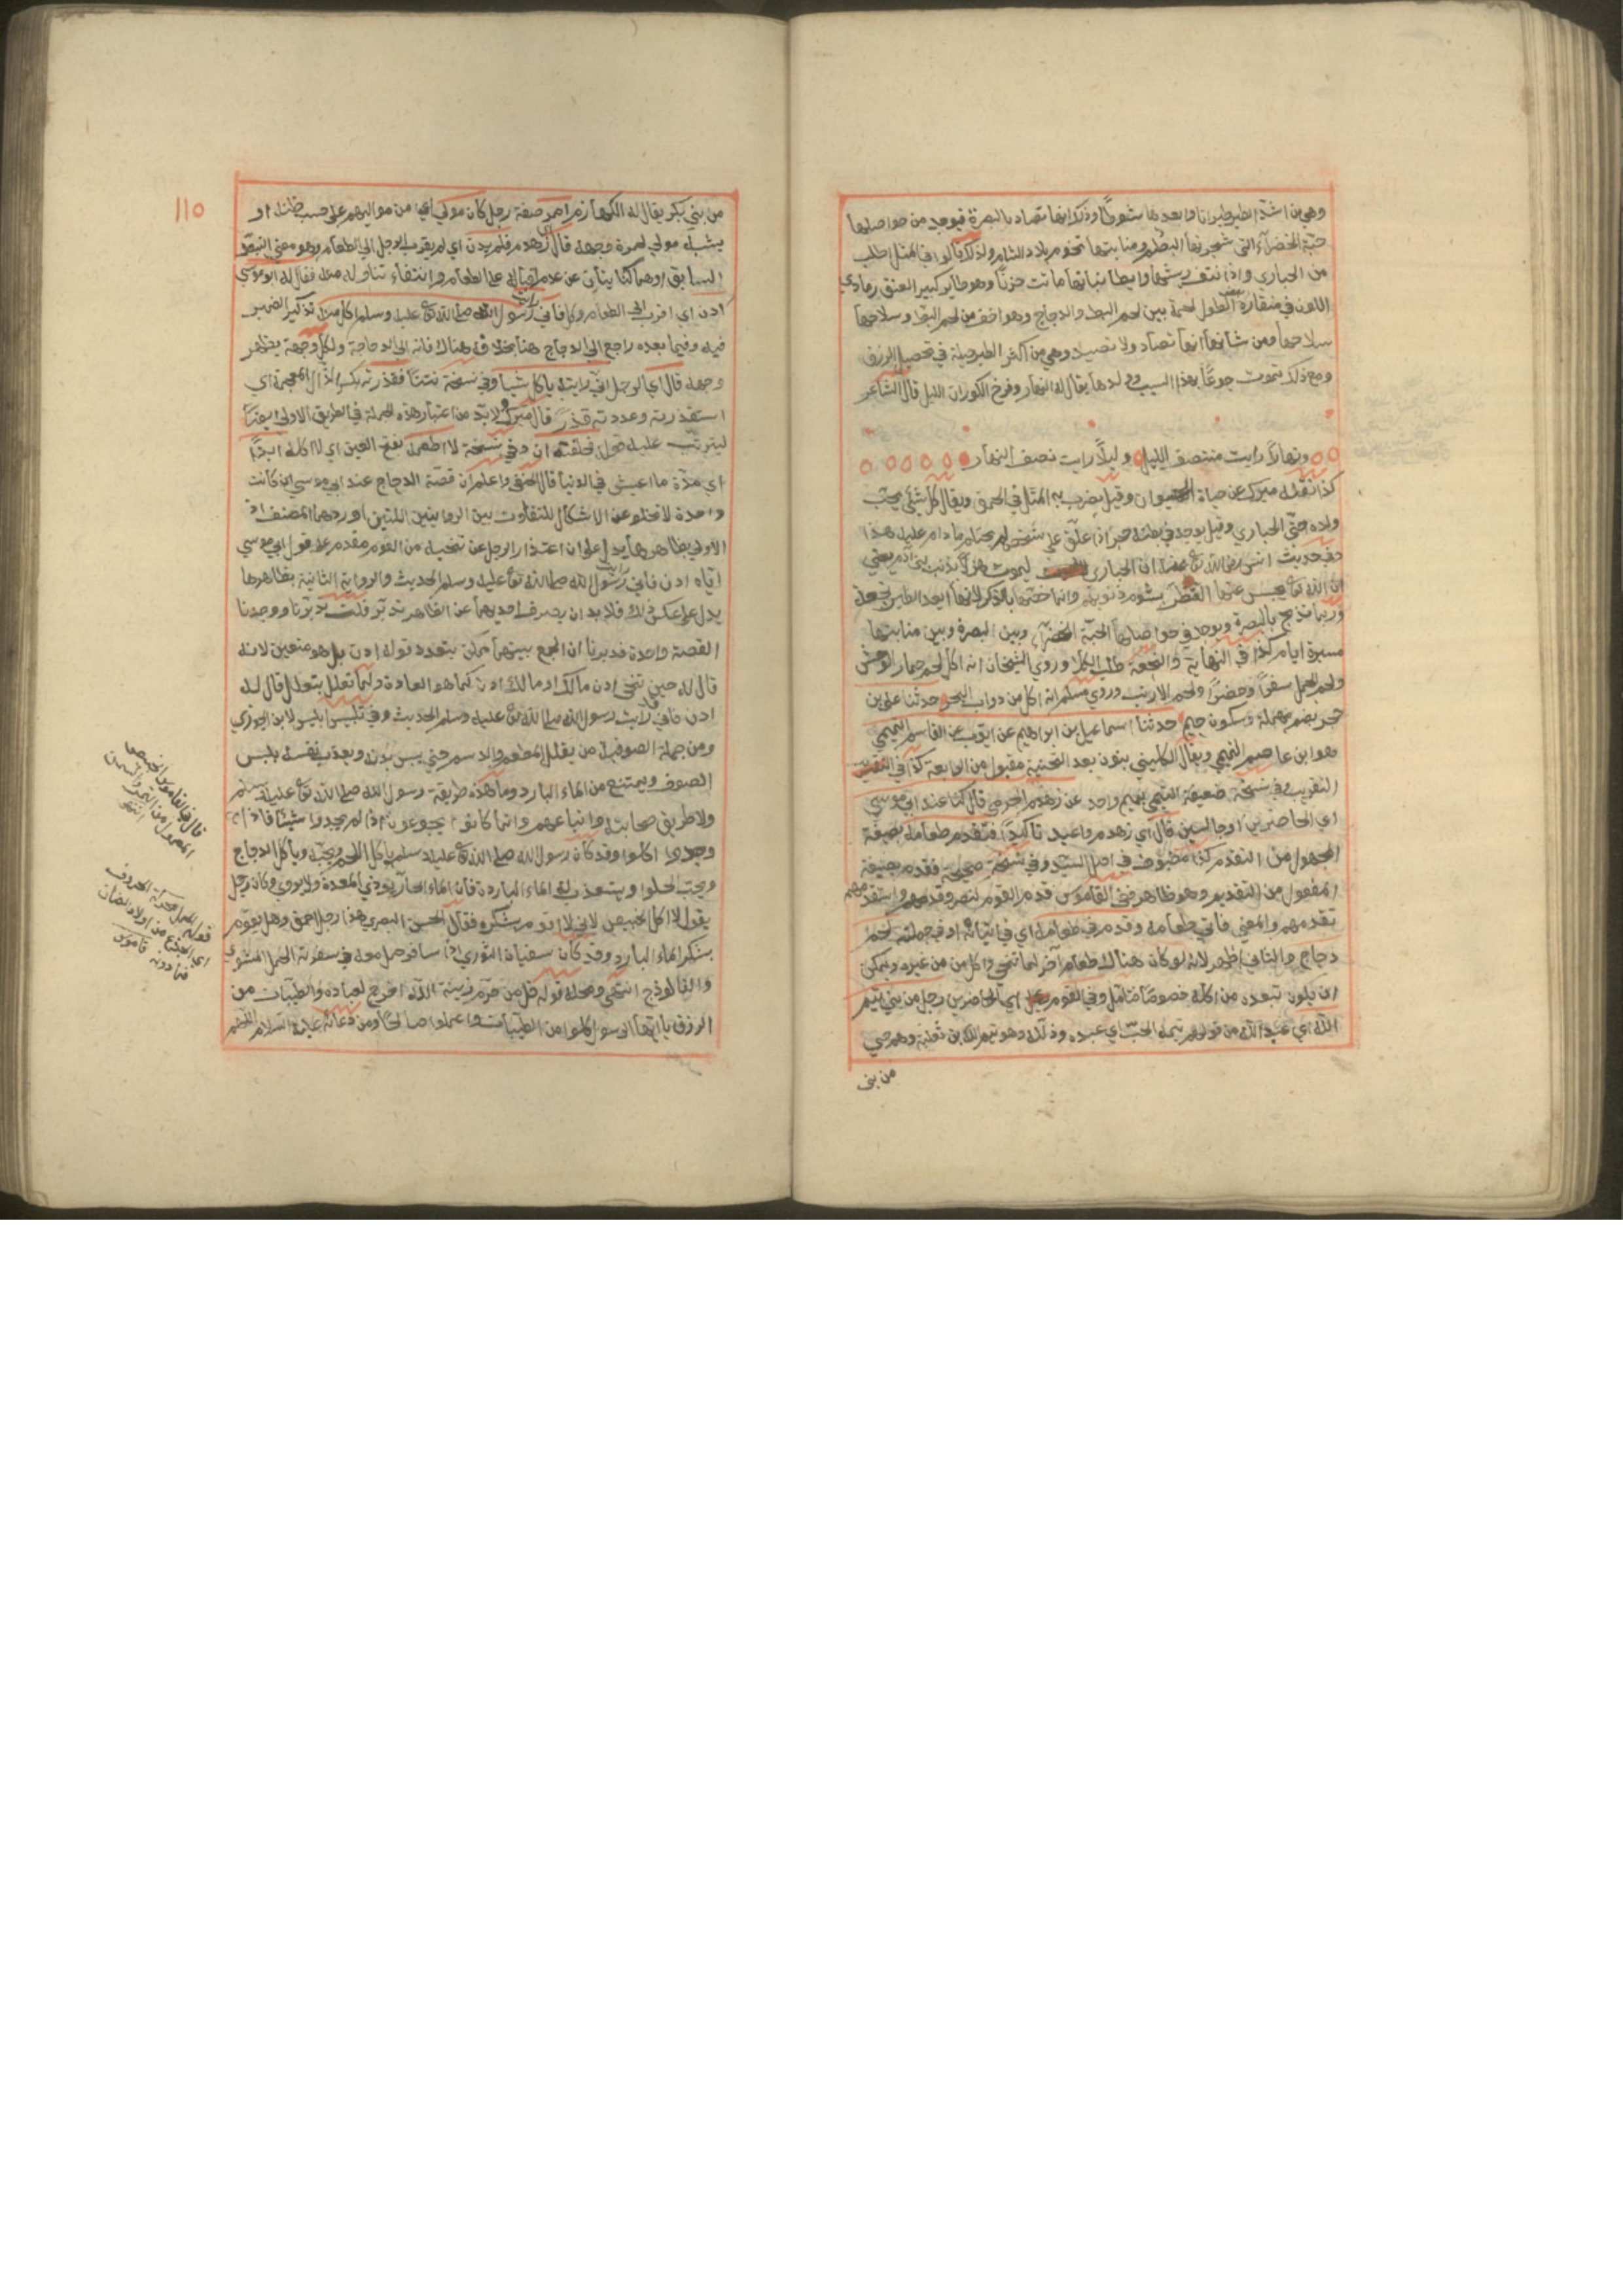 وهي من اشد الطير طيرانا وابعدها شوطا وذلك انها تصاد بالبصرة فيوجد من حواصلها
حبة الخضراء التي شجرتها البطم ومنابتها تخوم بلاد الشام ولذلك قالوا في المثل اطلب
من الحبارى واذا نتف ريشها وابطا نباتها ماتت حزنا وهو طاير كبير العنق رمادي
اللون في منقاره بعض الطول لحمه بين لحم البط والدجاج وهو اخف من لحم البط وسلاحها
سلاحها ومن شانها انها تصاد ولا تصيد وهي من اكثر الطير حيلة في تحصيل الرزق
ومع ذلك تموت جوعا بهذا السبب وولدها يقال له النهار وفرخ الكوران الليل قال الشاعر
ونهارا رايت منتصف الليل وليلا رايت نصف النهار
كذا نقله ميرك عن حياة الحيوان وقيل يضرب به المثل في الحمق ويقال كل شيء يحب
ولده حتى الحبارى وقيل يوجد في بطنه حجر اذا علق على شخص لم يحتلم ما دام عليه هذا
وفي حديث انس رضي الله تع عنه ان الحبارى لتموت هزلا بذنب بني آدم يعني
ان الله تع يحبس عنها القطر بشوم ذنوبهم وانما خصها بالذكر لانها ابعد الطير نجعة
وربما تذبح بالبصرة ويوجد في حواصلها الحبة الخضراء وبين البصرة وبين منابتها
مسيرة ايام كذا في النهاية والنجعة طلب الكلا وروى الشيخان انه اكل لحم حمار الوحش
ولحم الجمل سفرا وحضرا ولحم الارنب وروى مسلم انه اكل من دواب البحر حدثنا علي بن
حجر بضم مهملة وسكون جيم حدثنا اسماعيل بن ابراهيم عن ايوب عن القاسم التميمي
هو ابن عاصم التميمي ويقال الكليني بنون بعد التحتية مقبول من الرابعة كذا في
التقريب وفي نسخة ضعيفة التيمي بميم واحد عن زهدم الجرمي قال كنا عند ابي موسى
اي الحاضرين او جالسين قال اي زهدم واعيد تاكيدا فتقدم طعامه بصيغة
المجهول من التقدم كذا مضبوط في اصل السيد وفي نسخة صحيحة فقدم بصيغة
المفعول من التقديم وهو ظاهر ففي القاموس قدم القوم لنصر وقدمهم واستقدمهم
تقدمهم والمعنى فاتي طعامه وقدم في طعامه اي في اثنائه او في جملته لحم
دجاج والثاني اظهر لانه لو كان هناك طعام آخر لما تنحى واكل من غيره ويمكن
ان يكون تبعده من اكله خصوصا فتامل وفي القوم اي الحاضرين رجل من بني تيم
الله اي عبد الله من قولهم تيمه الحب اي عبده وذلله وهو تيم الله بن ثعلبة وهم حي
من بني
110
من بني بكر يقال له اللهازم احمر صفة رجل كان مولى اي من مواليهم على حسب ظنه او
يشبه مولى لحمرة وجهه قال اي زهدم فلم يدن اي لم يقرب الرجل الى الطعام وهو معنى التبعد
السابق وهما كنايتان عن عدم اقباله على الطعام وانتفاء تناوله منه فقال له ابو موسى
ادن اي اقرب الى الطعام وكل فاني رايت رسول الله صلى الله تع عليه وسلم اكل منه تذكير الضمير
فيه وفيما بعده راجع الى الدجاج هنا بخلاف هناك فانه الى الدجاجة ولكل وجهة يظهر
وجهه قال اي الرجل اني رايته ياكل شيا وفي نسخة نتنا فقذرته بكسر الذال المعجمة اي
استقذرته وعددته قذرا قال ميرك ولا بد من اعتبار هذه الجملة في الطريق الاولى ايضا
ليترتب عليه قوله فحلفت ان وفي نسخة لا اطعمه بفتح العين اي لا اكله ابدا
اي مدة ما اعيش في الدنيا قال الحنفي واعلم ان قصة الدجاج عند ابي موسى ان كانت
واحدة لا تخلو عن الاشكال للتفاوت بين الروايتين اللتين اوردهما المصنف اذ
الاولى بظاهرها يدل على ان اعتذار الرجل عن تنحيه من القوم مقدم على قول ابي موسى
اياه ادن فاني رايت رسول الله صلى الله تع عليه وسلم الحديث والرواية الثانية بظاهرها
يدل على عكس ذلك فلا بد ان يصرف احديهما عن الظاهر تدبر قلت تدبرنا ووجدنا
القصة واحدة فدبرنا ان الجمع بينهما ممكن بتعدد قوله ادن بل هو متعين لانه
قال له حين تنحى ادن مالك او مالك ادن كما هو العادة ولما تعلل بتعلل قال له
ادن فاني قد رايت رسول الله صلى الله تع عليه وسلم الحديث وفي تلبيس ابليس لابن الجوزي
ومن جملة الصوفية من يقلل المطعم والاسمر حتى يبس بدنه ويعذب نفسه بلبس
الصوف ويمتنع من الماء البارد وما هذه طريقة رسول الله صلى الله تع عليه وسلم
ولا طريق صحابته واتباعهم وانما كانوا يجوعون اذا لم يجدوا شيئا فاذا
وجدوا اكلوا وقد كان رسول الله صلى الله تع عليه وسلم ياكل اللحم ويحبه وياكل الدجاج
ويحب الحلوا ويستعذب له الماء البارد فان الماء الحار يوذي المعدة ولا يروي وكان رجل
يقول لا اكل الخبيص لاني لا اقوم بشكره فقال الحسن البصري هذا رجل احمق وهل يقوم
بشكر الماء البارد وقد كان سفيان الثوري اذا سافر حمل معه في سفرته الحمل المشوي
والفالوذج انتهى ومحله قوله قل من حرم زينة الله اخرج لعباده والطيبات من
الرزق يا ايها الرسول كلوا من الطيبات واعملوا صالحا ومن دعائه عليه السلام اللهم
قال في القاموس الخبيص
المعمول من التمر والسمن
انتهى
قوله الحمل محركة الخروف
او الجذع من اولاد الضان
فما دونه قاموس